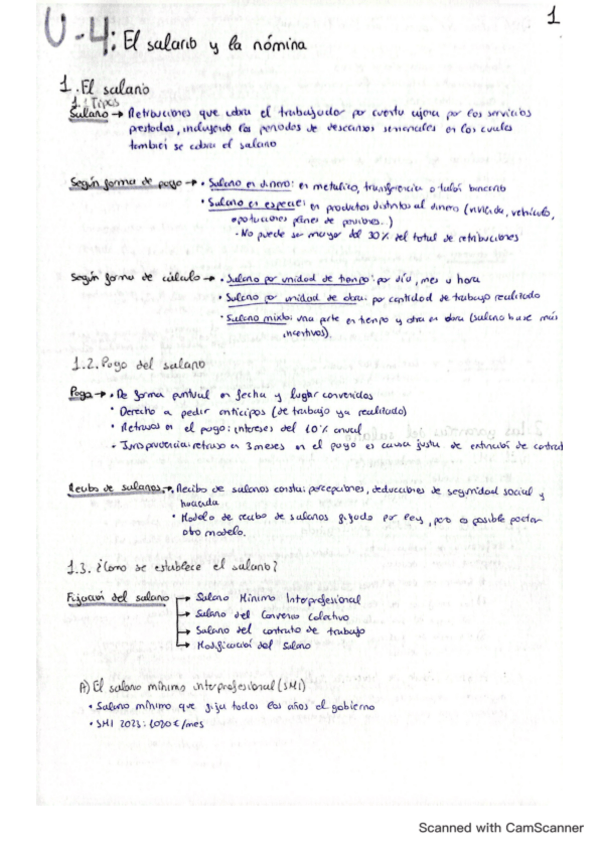 1
U-4: El salario y la nómina
1. El salario
1.1 Tipos
Salario → Retribuciones que cobra el trabajador por cuenta ajena por los servicios
prestados, incluyendo los periodos de descansos semanales en los cuales
también se cobra el salario
Según forma de pago → • Salario en dinero: en metalico, transferencia o talón bancario
• Salario en especie: en productos distintos al dinero (vivienda, vehículo,
aportaciones planes de pensiones..)
• No puede ser mayor del 30% del total de retribuciones
Según forma de cálculo → • Salario por unidad de tiempo: por día, mes u hora
• Salario por unidad de obra: por cantidad de trabajo realizado
• Salario mixto: una parte en tiempo y otra en obra (salario base más
incentivos).
1.2. Pago del salario
Pago → • De forma puntual en fecha y lugar convenidos
• Derecho a pedir anticipos (de trabajo ya realizado)
• Retrasos en el pago: intereses del 10% anual
• Jurisprudencia: retraso en 3 meses en el pago es causa justa de extinción de contrato
Recibo de salarios → • Recibo de salarios consta: percepciones, deducciones de seguridad social y
hacienda
• Modelo de recibo de salarios fijado por ley, pero es posible pactar
otro modelo.
1.3. ¿Como se establece el salario?
Fijación del salario → Salario Mínimo Interprofesional
→ Salario del Convenio Colectivo
→ Salario del contrato de trabajo
→ Modificación del Salario
A) El salario mínimo interprofesional (SMI)
• Salario mínimo que fija todos los años el gobierno
• SMI 2023: 1080€/mes
Scanned with CamScanner